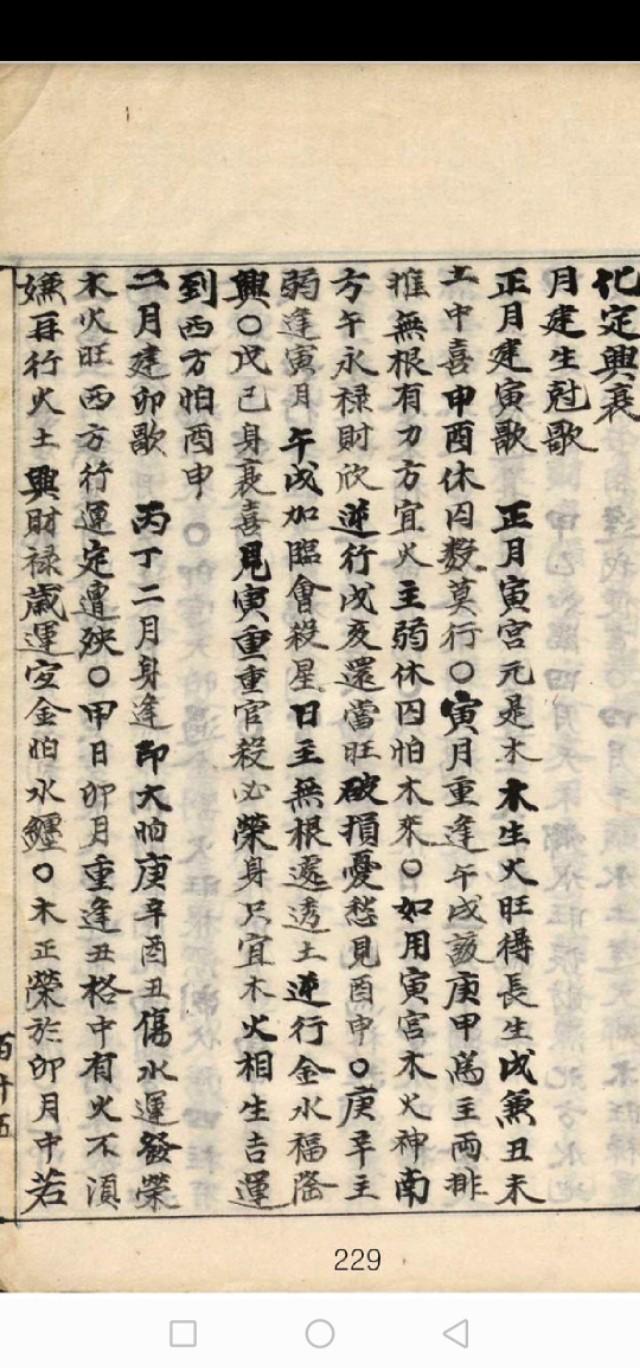 化定興衰
月建生尅歌
正月建寅歌　正月寅宮元是木木生火旺得長生戌無丑未
土中喜申酉休囚數莫行○寅月重逢午戌該庚甲為主兩排
推無根有力方宜火主弱休囚怕木來○如用寅宮木火神南
方午永祿財欣逆行戌亥還當旺破損憂愁見酉申○庚辛主
弱逢寅月午戌加臨會殺星日主無根處透土逆行金水福蔭
興○戊己身衰喜見寅重重官殺必榮身只宜木火相生吉運
到西方怕酉申
二月建卯歌　丙丁二月身逢印大怕庚辛酉丑傷水運發榮
木火旺西方行運定遭殃○甲日卯月重逢丑格中有火不須
嫌再行火土興財祿歲運安金怕水纏○木正榮於卯月中若
百十五
229